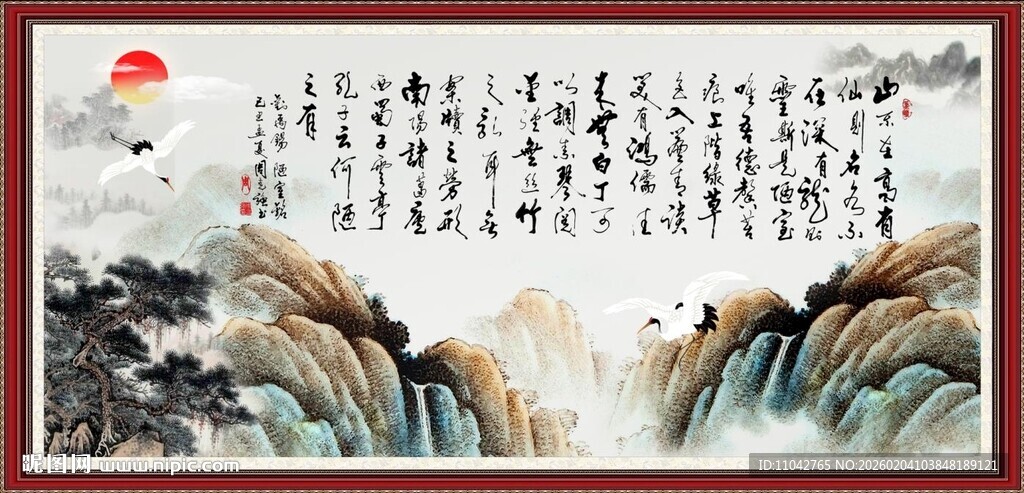 山不在高有
仙則名水不
在深有龍則
靈斯是陋室
唯吾德馨苔
痕上階綠草
色入簾青談
笑有鴻儒往
來無白丁可
以調素琴閱
金經無絲竹
之亂耳無
案牘之勞形
南陽諸葛廬
西蜀子雲亭
孔子云何陋
之有
劉禹錫 陋室銘
孟夏周書
昵图网 www.nipic.com
ID:11042765 NO:20260204103848189121